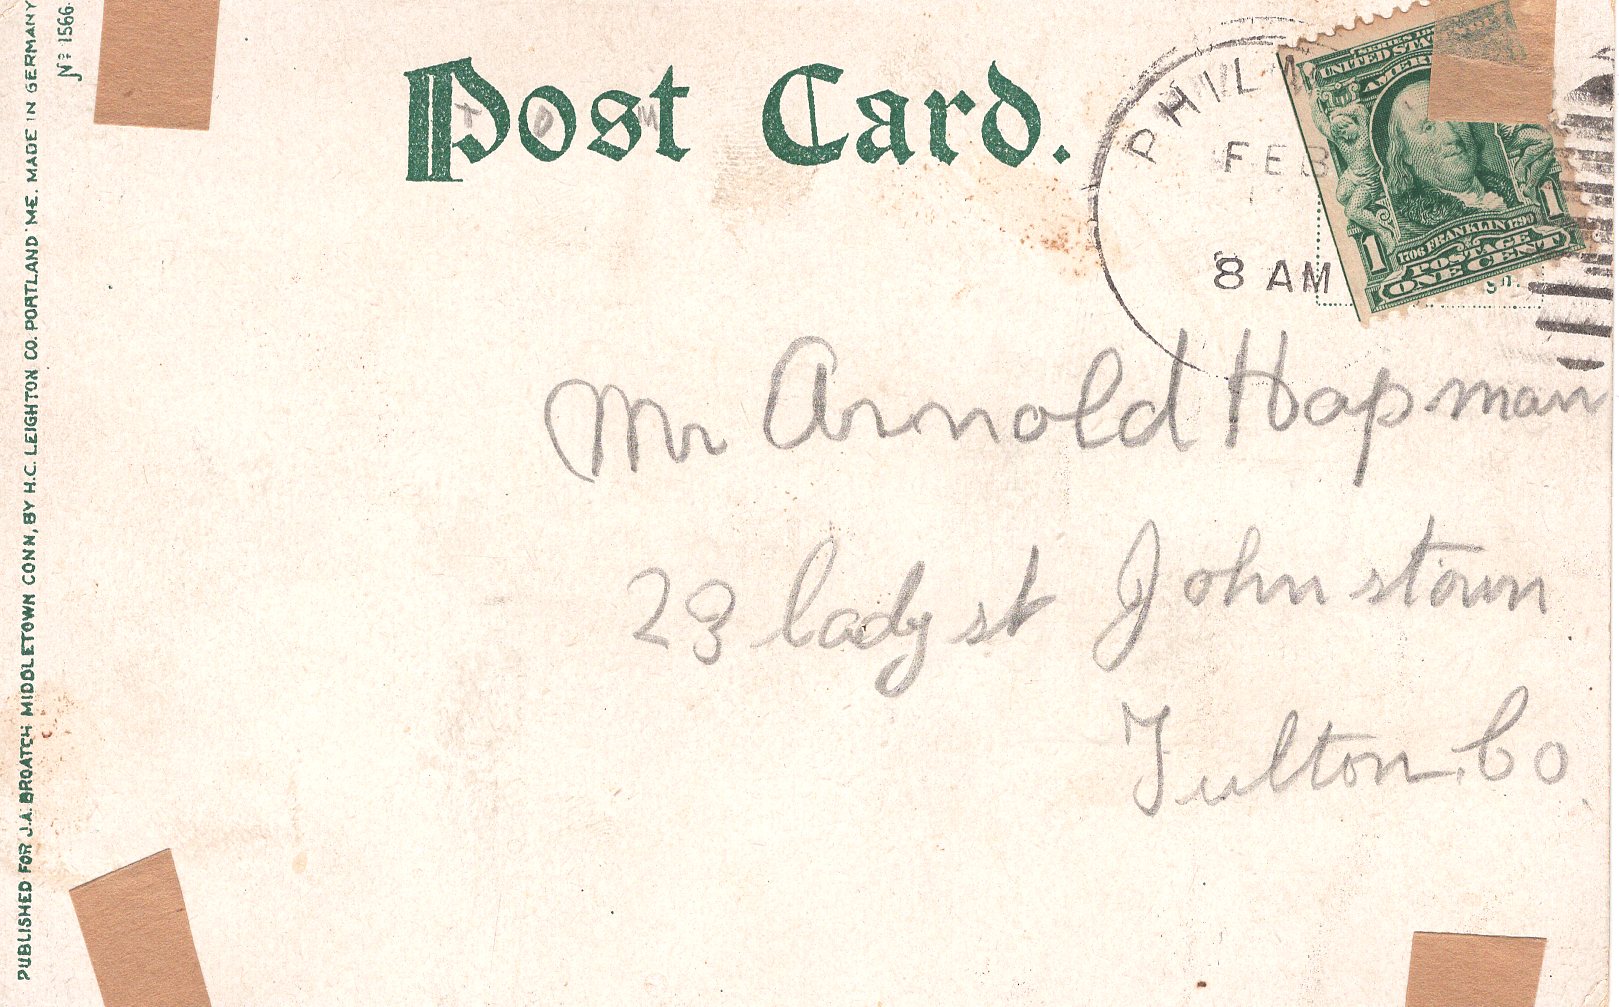 PUBLISHED FOR J.A. BROATCH MIDDLETOWN CONN, BY H.C. LEIGHTON CO. PORTLAND ME. MADE IN GERMANY
No 1566.
Post Card.
PHIL
FEB
8 AM
SERIES
UNITED STA
AMER
1706 FRANKLIN 1790
1 POSTAGE 1
ONE CENT
Mr Arnold Hapman
23 lady st Johnstown
Fulton Co